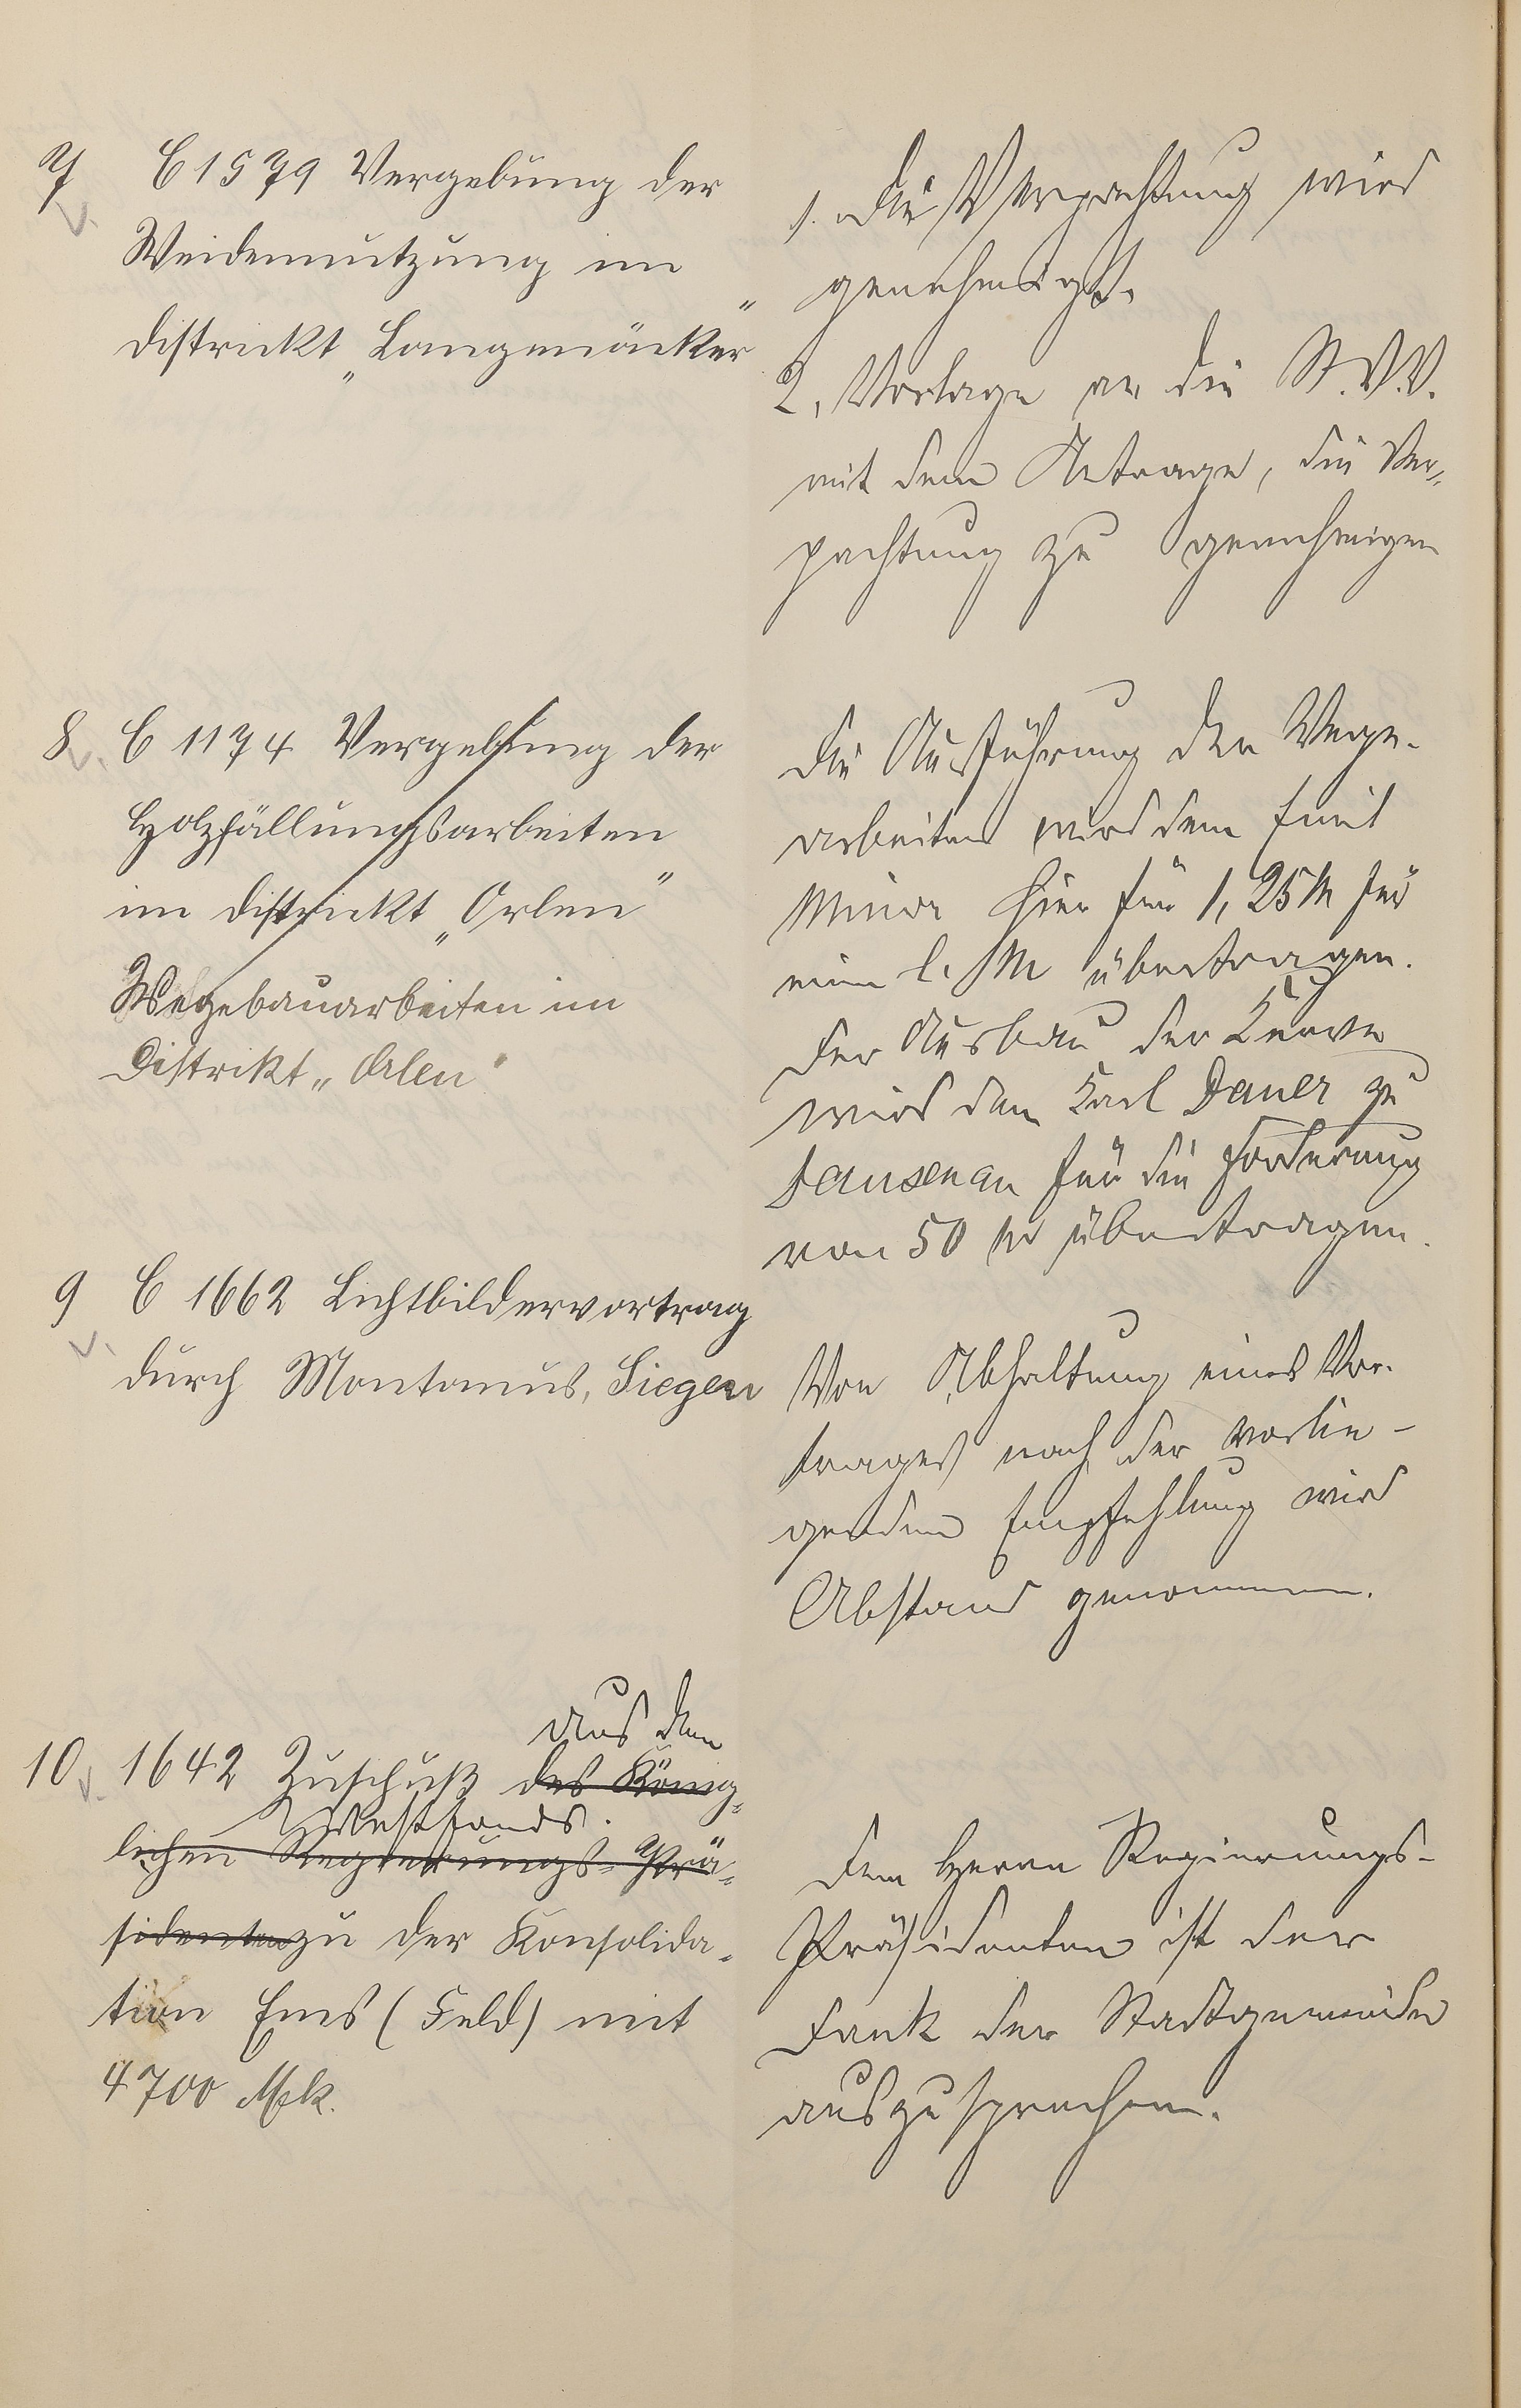 7 C 1579 Vergebung der
Weidennutzung im
Districkt „Langenäcker"
1. Die Verpachtung wird
genehmigt.
2. Vorlage an die St.V.V.
mit dem Antrage, die Ver-
pachtung zu genehmigen
8. C 1174 Vergebung der
Holzfällungsarbeiten
im Districkt „Orlen"
Wegebauarbeiten im
Distrikt „Orlen"
Die Ausführung der Wege-
arbeiten wird dem Emil
hier für 1,25 M für
ein l. M übertragen.
Der Ausbau der Kurve
wird dem Karl Dauer zu
Dausenau für die Forderung
von 50 M übertragen.
9 C 1662 Lichtbildervortrag
durch Montanus, Siegen
Von Abhaltung eines Vor-
trages nach der vorlie-
genden Empfehlung wird
Abstand genommen.
aus dem
10. 1642 Zuschuß des König-
Westfonds.
lichen Regierungs-Prä-
sidenten zu der Konsolida-
tion Ems (Feld) mit
4700 Mk.
Dem Herrn Regierungs-
Präsidenten ist der
Dank der Stadtgemeinde
auszusprechen.